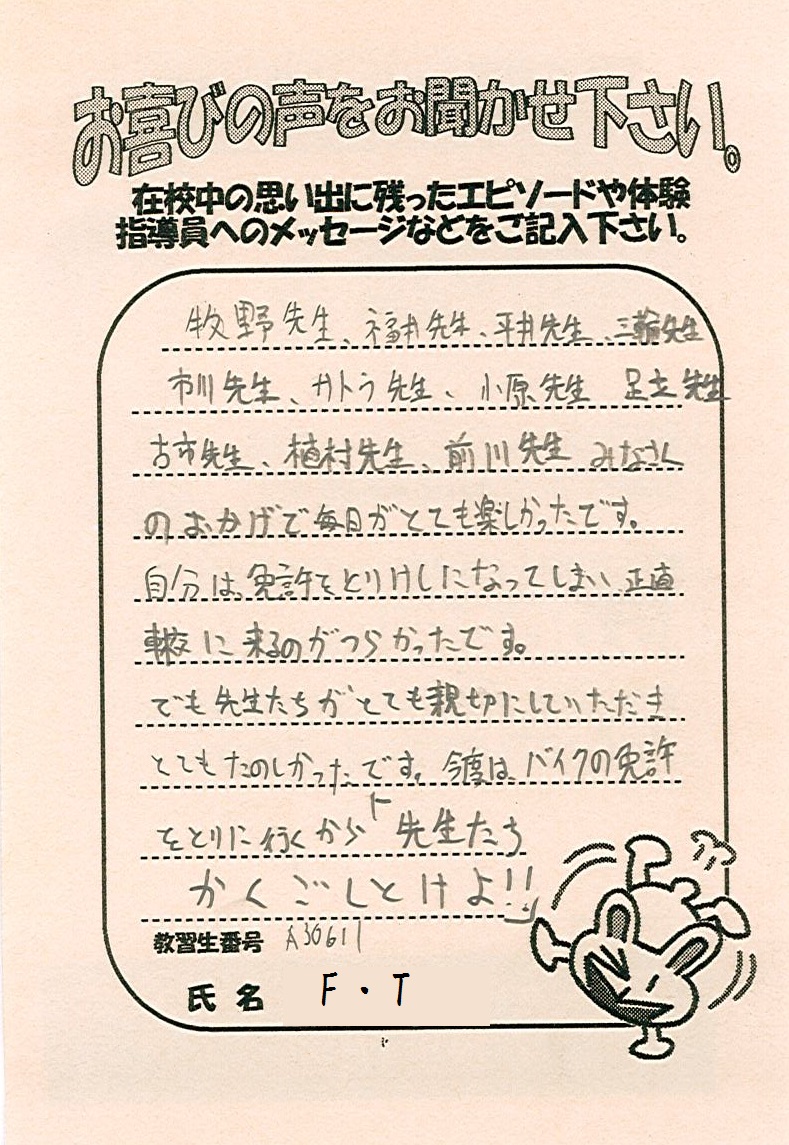 お喜びの声をお聞かせ下さい。
在校中の思い出に残ったエピソードや体験
指導員へのメッセージなどをご記入下さい。
牧野先生、福井先生、平井先生、三輪先生
市川先生、カトウ先生、小原先生 足立先生
古市先生、植村先生、前川先生 みなさん
のおかげで毎日がとても楽しかったです。
自分は、免許をとりけしになってしまい、正直
車校に来るのがつらかったです。
でも先生たちがとても親切にしていただき
とてもたのしかったです。今度は、バイクの免許
をとりに行くから「先生たち
かくごしとけよ!!」
教習生番号 A30611
氏名 F・T